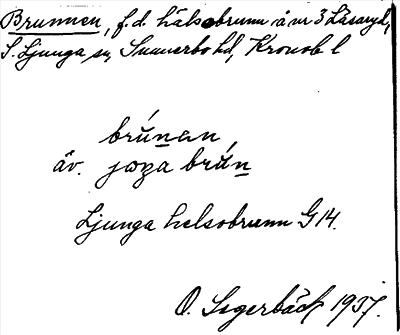 Brunnen, f.d. hälsobrunn å nr 3 Läsaryd,
S. Ljunga sn, Sunnerbo hd, Kronob l
brúnan
äv. jɷŋa brún
Ljunga helsobrunn G 14.
O. Segerbäck 1937.